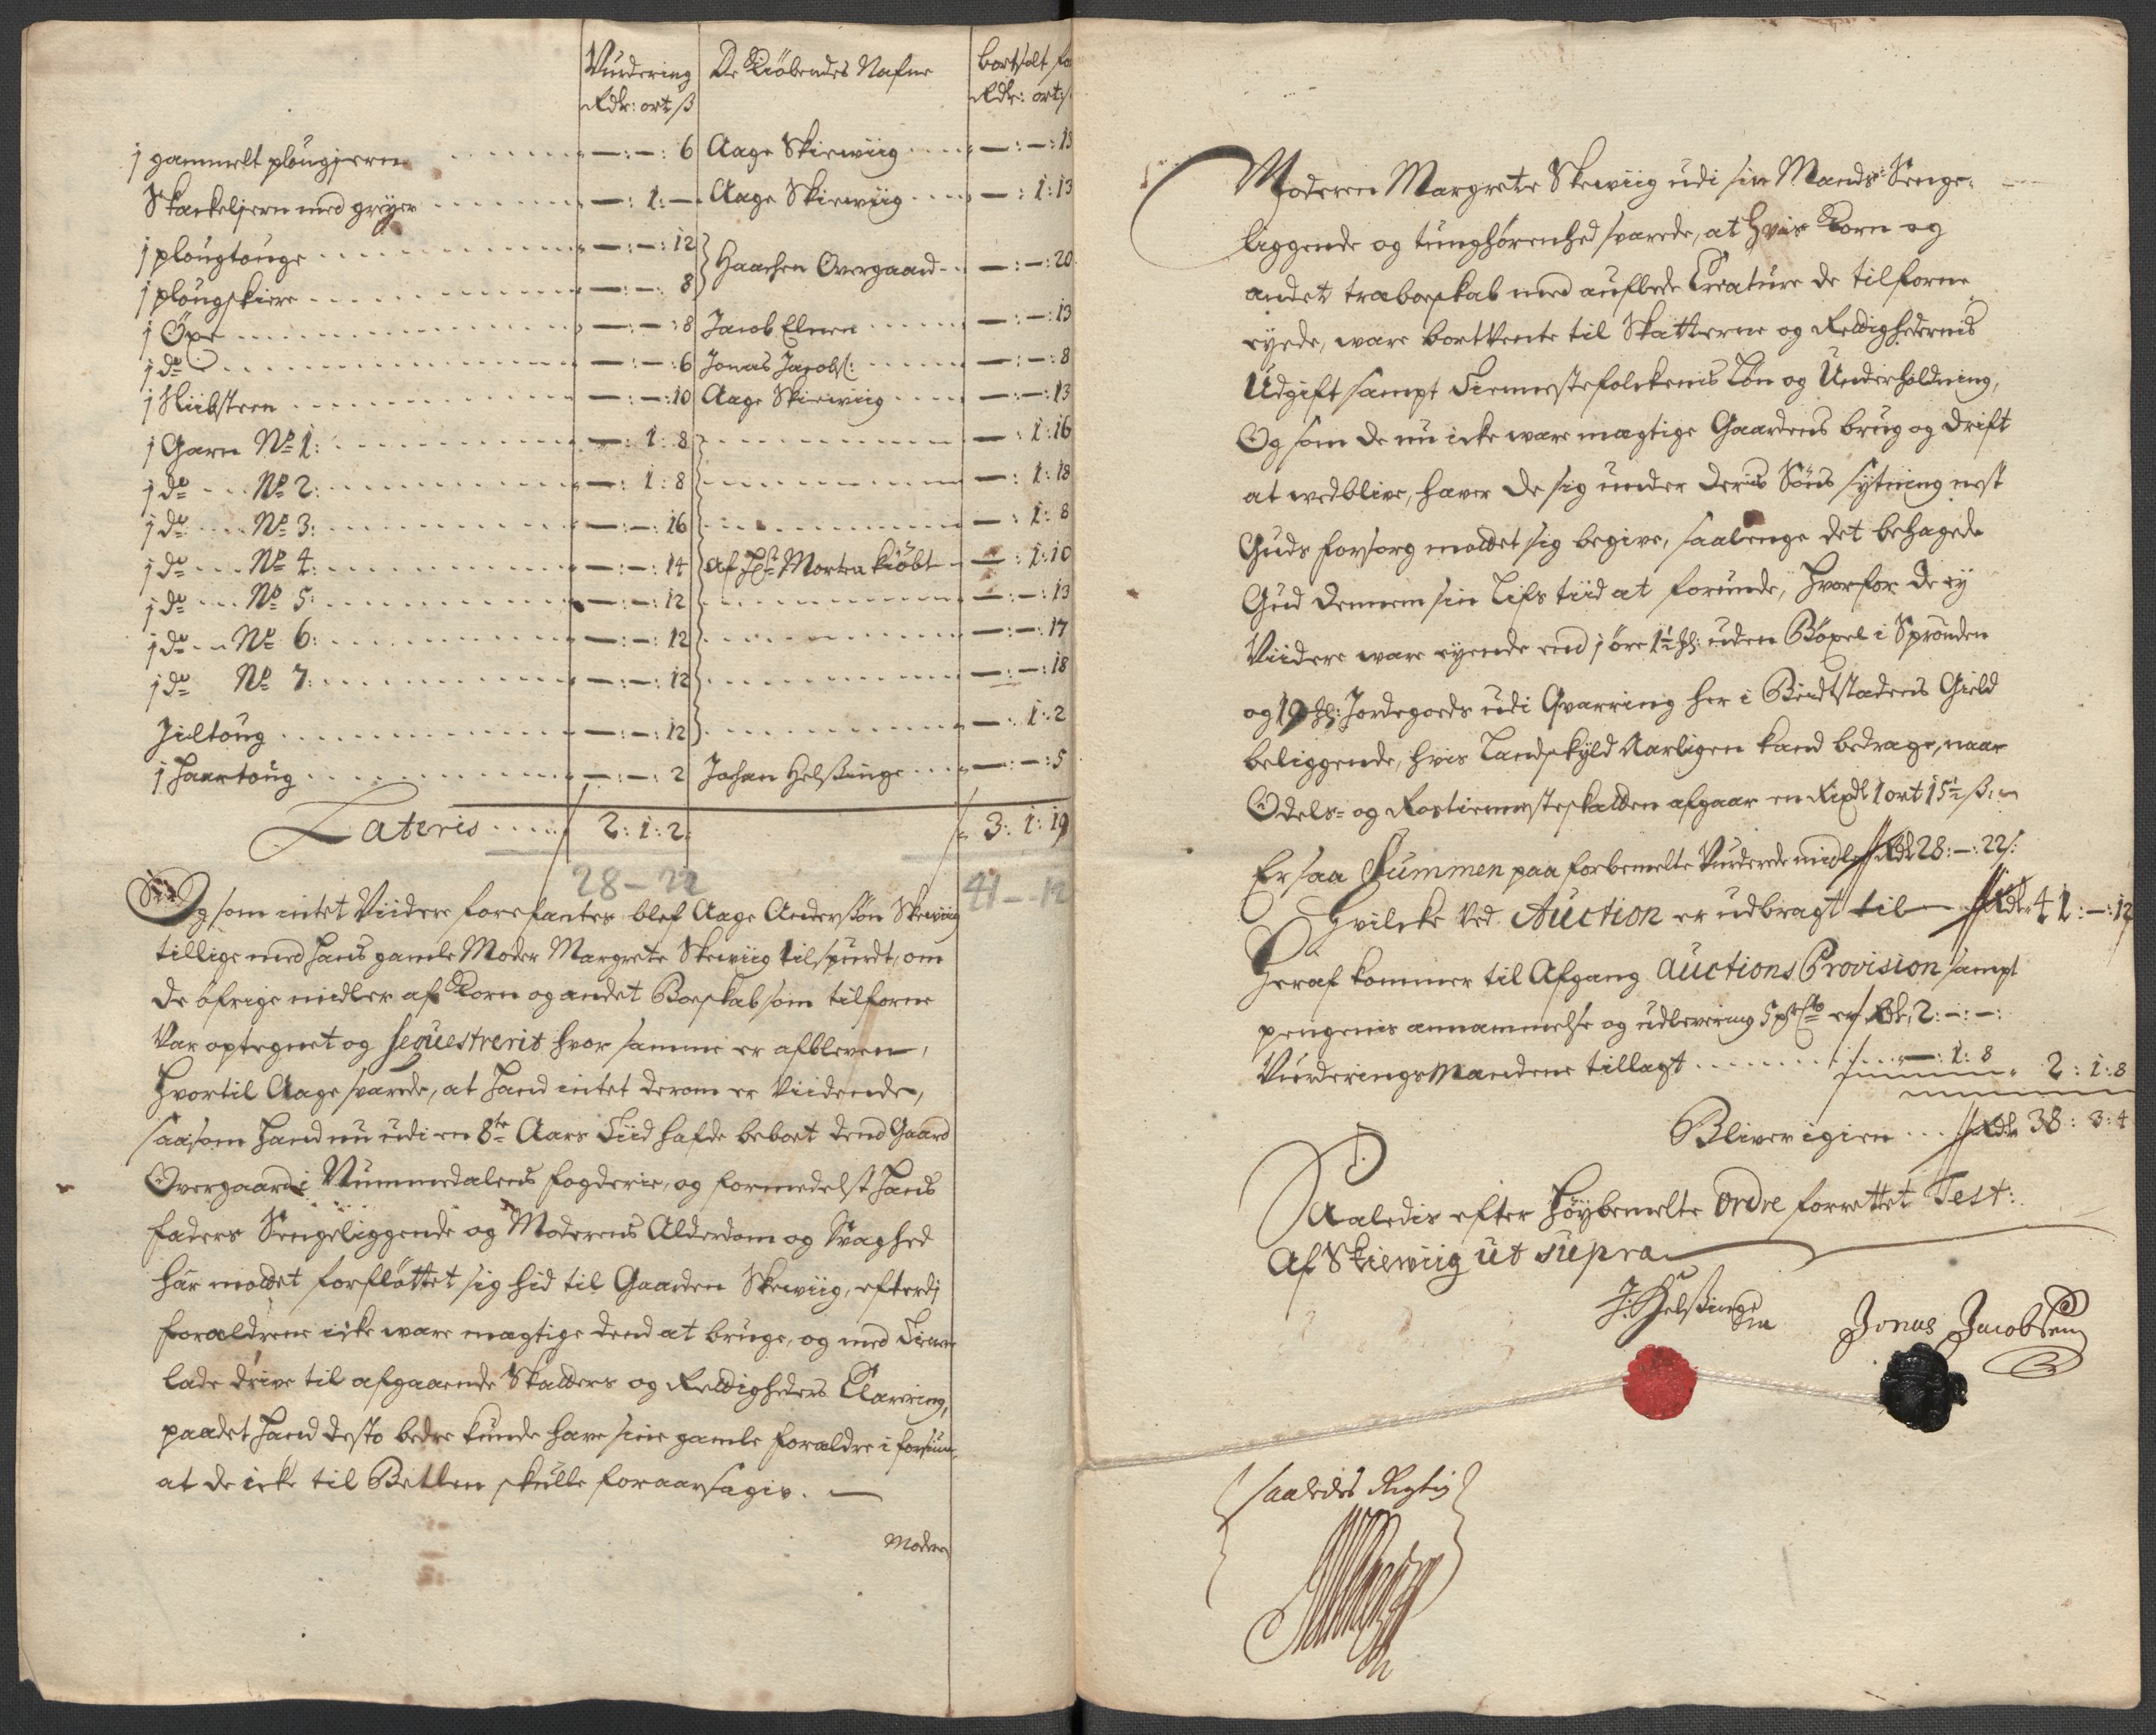 Vurdering De Kiöbendes Nafne bortsolt for
Rdr: ort ß Rdr: ort: ß
j gammelt plougjern — : — : 6 Aage Skiewiig — : — : 13
Skankeljern med greyer — : 1 : — Aage Skiewiig — : 1 : 13
j plougtouge — : — : 12
j plougskiere — : — : 8 Haachen Overgaard — : — : 20
j Öxe — : — : 8 Jacob Elnen — : — : 13
j do — : — : 6 Jonas Jacobs: — : — : 8
j Sliibsteen — : — : 10 Aage Skiewiig — : — : 13
j Garn No 1: — : 1 : 8 — : 1 : 16
j do No 2: — : 1 : 8 — : 1 : 18
j do No 3: — : — : 16 — : 1 : 8
j do No 4: — : — : 14 af Hr Morten kiöbt — : 1 : 10
j do No 5: — : — : 12 — : — : 13
j do No 6: — : — : 12 — : — : 17
j do No 7: — : — : 12 — : — : 18
Jiltoug — : — : 12 — : 1 : 2
j Haartoug — : — : 2 Johan Helssinge — : — : 5
Lateris 2 : 1 : 2 3 : 1 : 19
28 — 22 41 — 12
Og som intet Viidere forefantes blef Aage Anderssön Skewiig
tillige med hans gamle Moder Margrete Skewiig tilspurdt, om
de öfrige midler af Korn og andet Boeskab som tilforne
Var optegnet og seqvestrerit hvor samme er afbleven,
Hvortil Aage svarede, at hand intet derom er Viidende,
saasom hand nu udi en 8te Aars Tiid hafde beboet dend Gaard
Overgaard i Nummedalens fogderie, og formedelst hans
faders Sengeliggende og Moderens Alderdom og Svaghed
har maattet forfløttet sig hid til Gaarden Skewiig, efterdj
foraldrene icke ware magtige dend at bruge, og med
lade drive til afgaaende Skatters og Rettigheders Clarering,
paadet hand desto bedre kunde have sine gamle foraldre i
at de icke til Betlen skulle foraarsagis. —
Moderen
Moderen Margrete Skewiig udi sin Mands Senge-
liggende og tunghörenhed svarede, at hvis Korn og
andet traboeskab med auflede Creature de tilforne
eyede, ware bortVente til Skatterne og Rettighedernis
Udgift sampt Tiennistefolckenis Lön og Underholdning,
Og som de nu icke ware magtige Gaardens brug og drift
at wedblive, haver de sig under deris Söns sytning nest
Guds forsorg maattet sig begive, saalenge det behagede
Gud dennem sin Lifs tiid at forunde, hvorfor de ey
Viidere ware eyende end j öre 1½ : uden Böxel i Spronden
og 19 : Jordegoeds udi Qvarring her i Beidtstadens Gield
beliggende, hvis Landskyld Aarligen kand bedrage, naar
Odels- og Rostiennisteskatten afgaar en Rixdr 1 ort 15½ ß: —
Er saa Summen paa forbemelte Vurderede midler Rdr 28 : — : 22 ß:
Hvilcke Ved Auction er udbragt til Rdr 41 : — : 12
Heraf kommer til Afgang Auctions Provision sampt
pengenis annammelse og udlevering 5 prCto er Rdr 2 : — : —
Vurderings Mandene tillagt — : 1 : 8 2 : 1 : 8
Bliver igien Rdr 38 : 3 : 4
Saaledis efter Höybemelte Ordre forrettet Test:
Af Skiewiig ut supra
J: Helssinge
Jonas Jacobsen
saaledes Rigtig